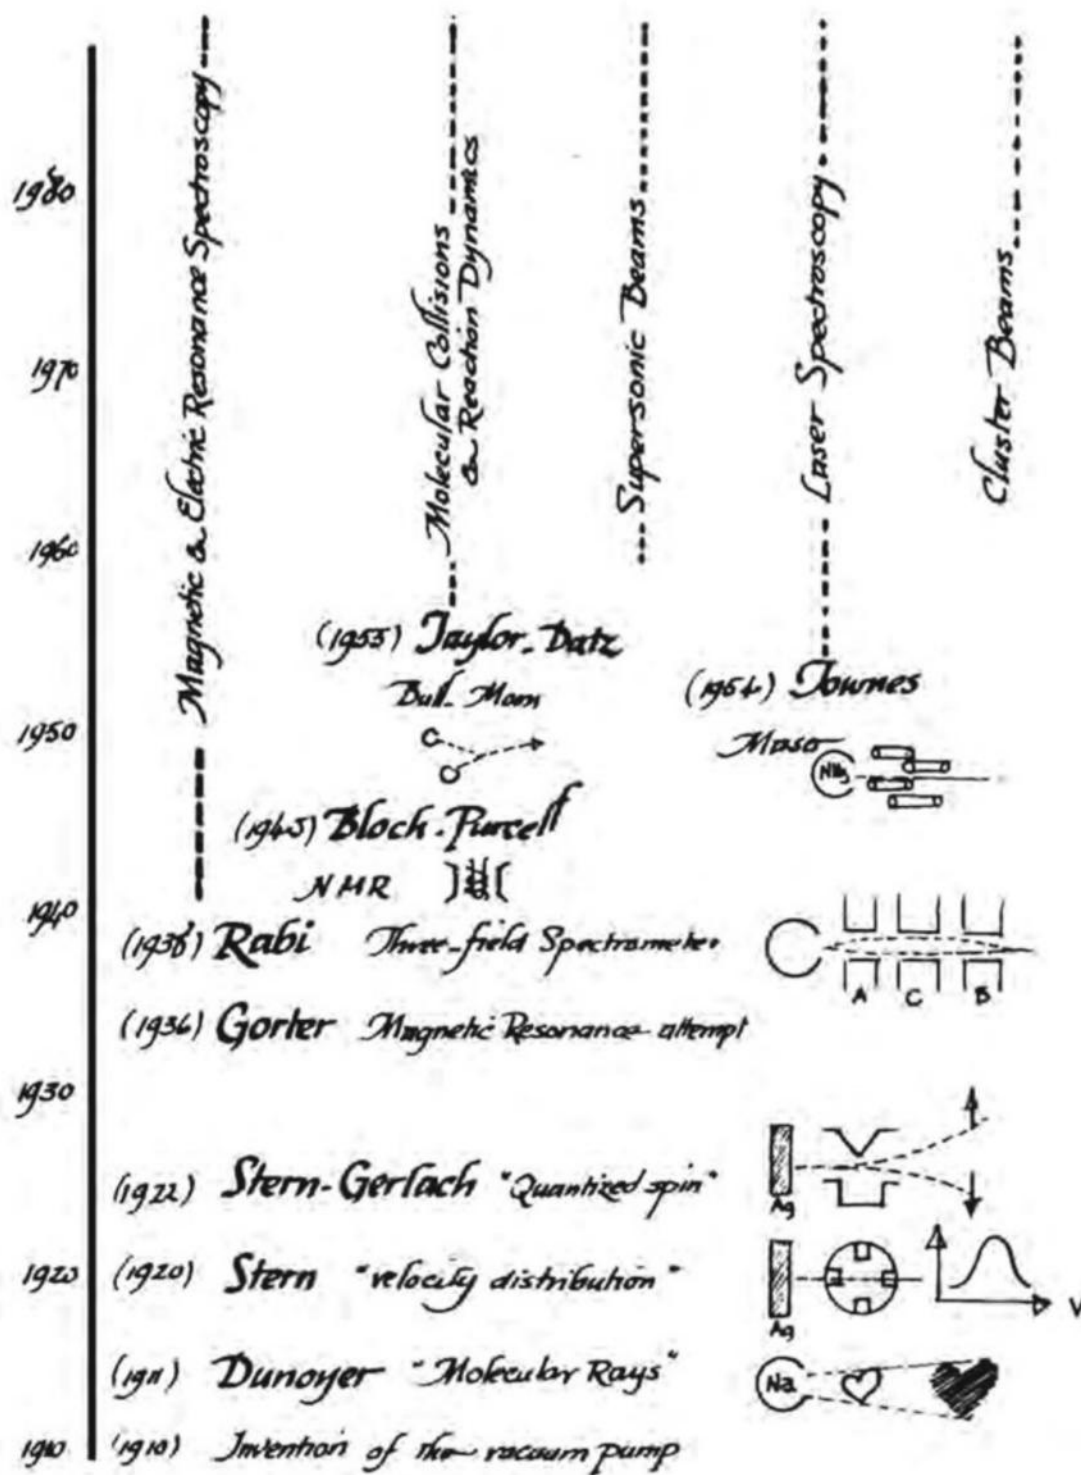 Magnetic & Electric Resonance Spectroscopy
Molecular Collisions
& Reaction Dynamics
Supersonic Beams
Laser Spectroscopy
Cluster Beams
1980
1970
1960
(1955) Taylor-Datz
(1954) Townes
1950
Maser
NH3
(1945) Bloch-Purcell
NMR
1940
(1938) Rabi Three-field Spectrometer
A C B
(1936) Gorter Magnetic Resonance attempt
1930
(1922) Stern-Gerlach "Quantized spin"
Ag
1920 (1920) Stern "velocity distribution"
Ag
V
(1911) Dunoyer "Molecular Rays"
Na
1910 (1910) Invention of the vacuum pump